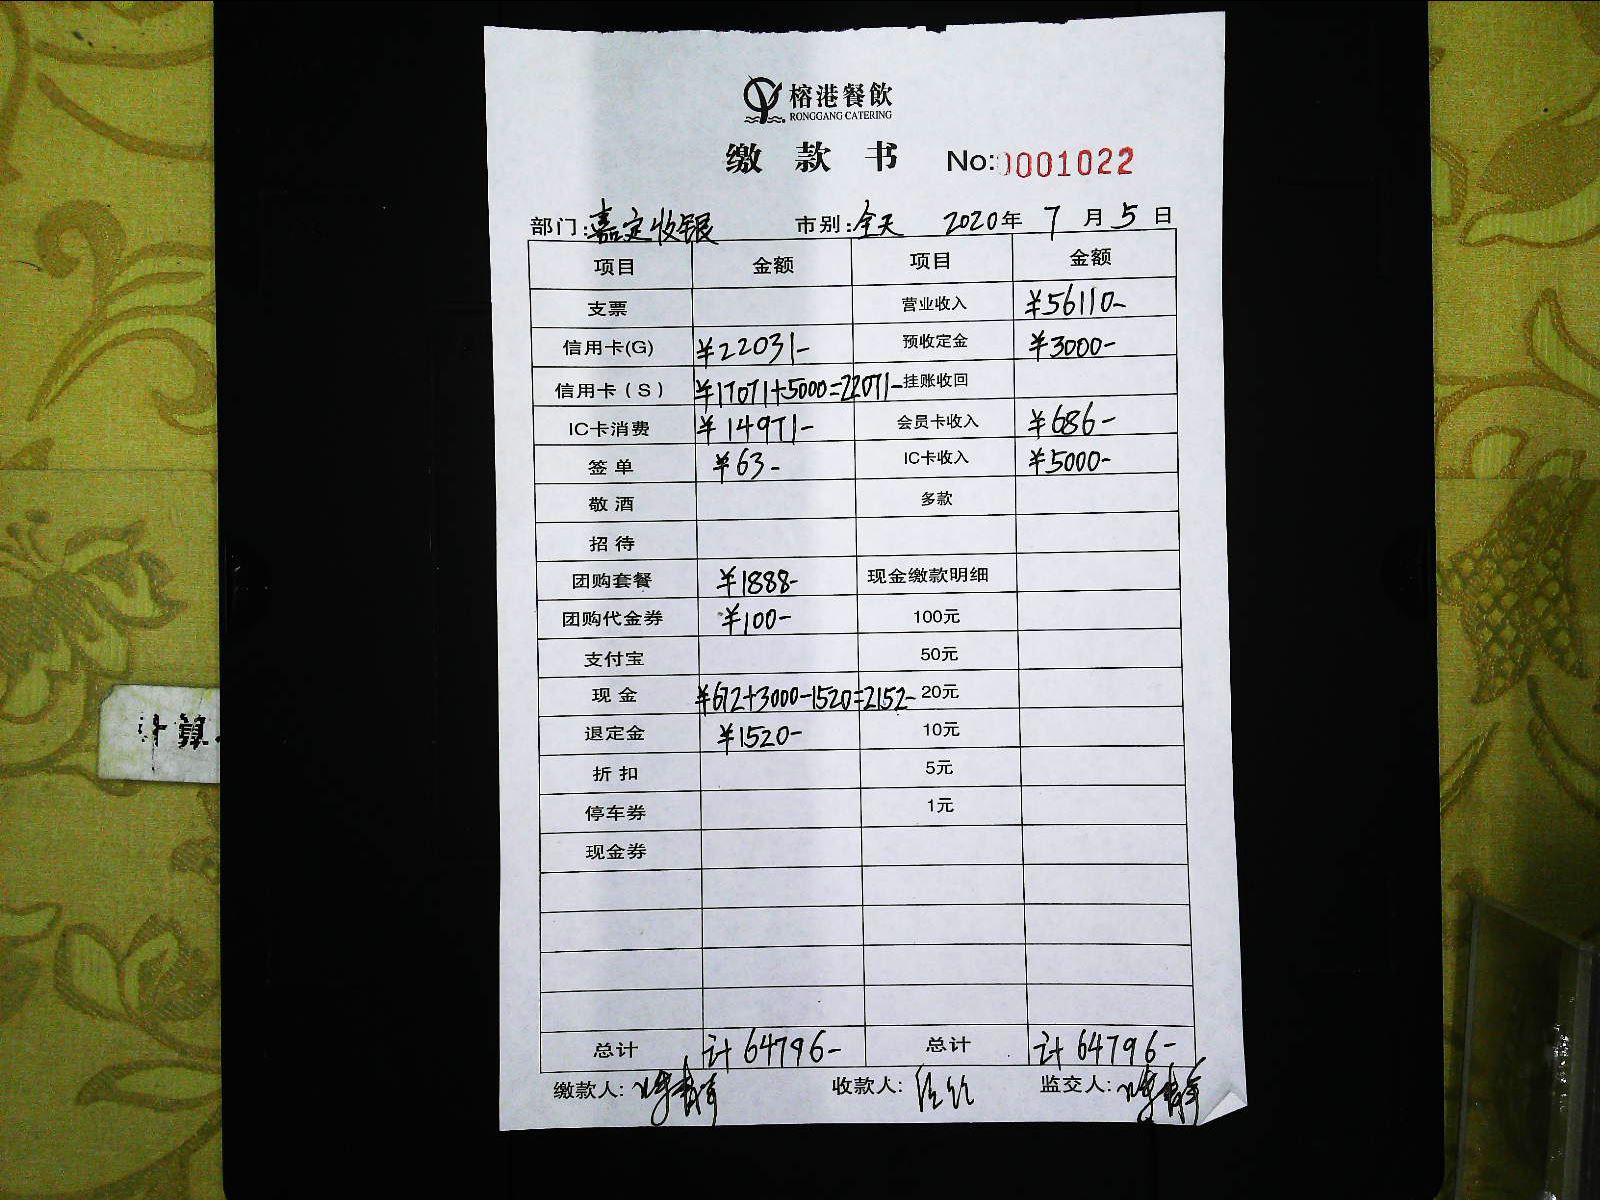 榕港餐飲
RONGGANG CATERING
缴 款 书 No:0001022
部门:嘉定收银 市别:全天 2020年 7 月 5 日
项目 金额 项目 金额
支票 营业收入 ¥56110-
信用卡(G) ¥22031- 预收定金 ¥3000-
信用卡(S) ¥17071+5000=22071- 挂账收回
IC卡消费 ¥14971- 会员卡收入 ¥686-
签单 ¥63- IC卡收入 ¥5000-
敬酒 多款
招待
团购套餐 ¥1888- 现金缴款明细
团购代金券 ¥100- 100元
支付宝 50元
现金 ¥672+3000-1520=2152- 20元
退定金 ¥1520- 10元
折扣 5元
停车券 1元
现金券
总计 计64796- 总计 计64796-
缴款人: 收款人: 监交人:
计算